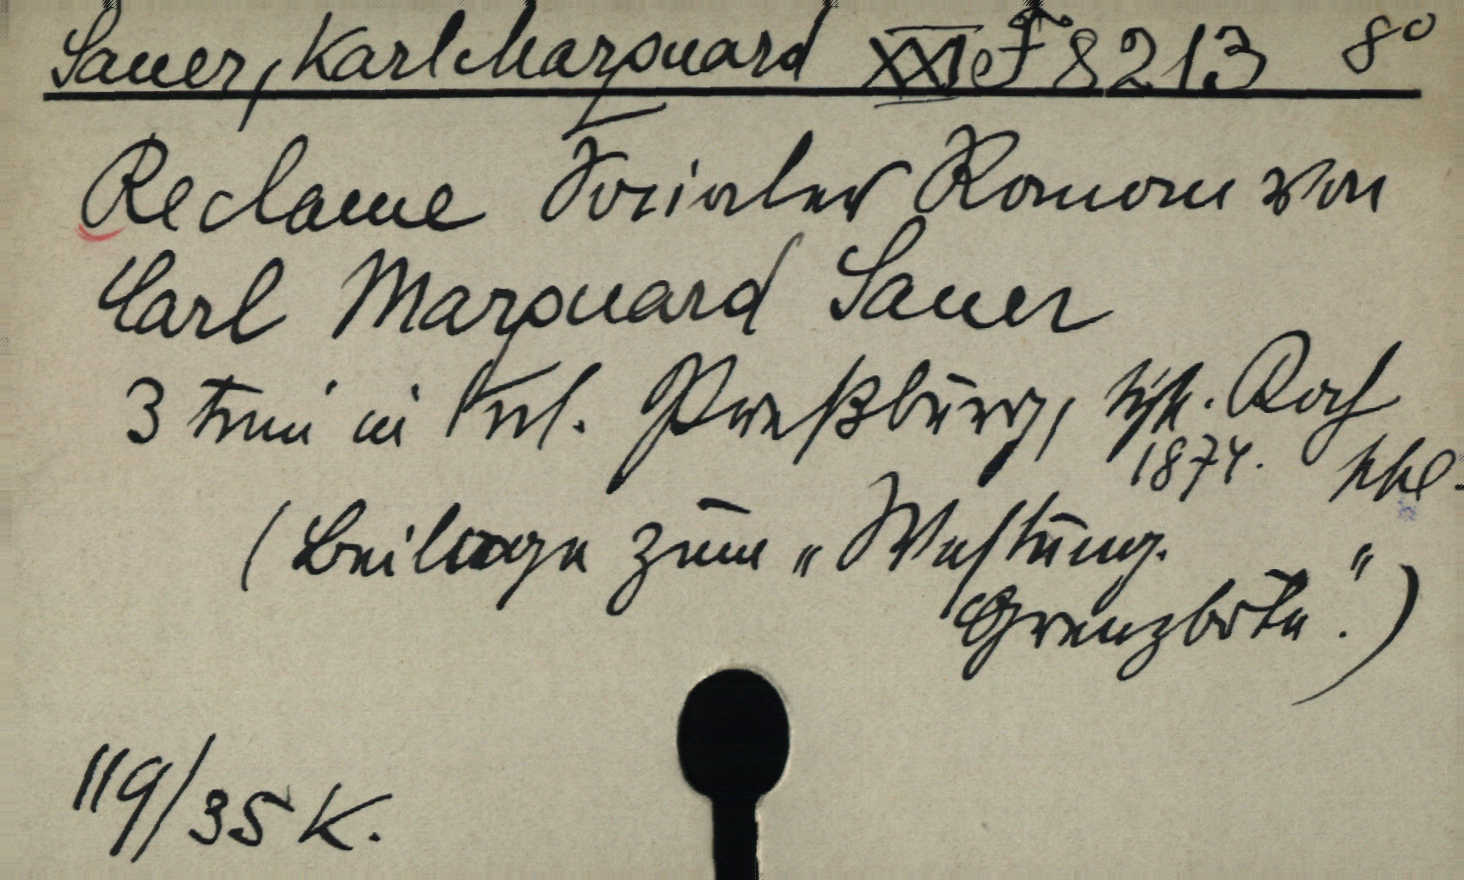 Sauer, Karl Marquard XXI e F 8213 8°
Reclame Sozialer Roman von
Carl Marquard Sauer
3 Teile in 1 Vol. Preßburg, Roch
1874.
(Beilage zum "Westung.
Grenzbote".)
119/35 K.